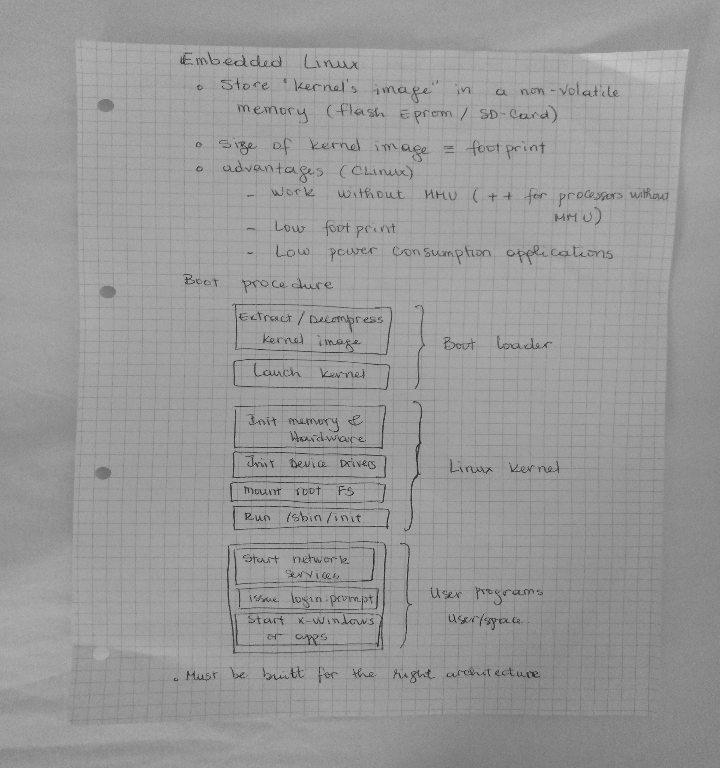 Embedded Linux
• Store "kernel's image" in a non-volatile
memory (flash Eprom / SD-Card)
• Size of kernel image = footprint
• advantages (CLinux)
- Work without MMU (++ for processors without
MMU)
- Low footprint
- Low power consumption applications
Boot procedure
Extract / Decompress
kernel image
Lauch kernel
Boot loader
Init memory &
Hardware
Init Device Drivers
mount root FS
Run /sbin/init
Linux kernel
Start network
services
issue login prompt
Start x-windows
or apps
User programs
User/space
• Must be built for the right architecture